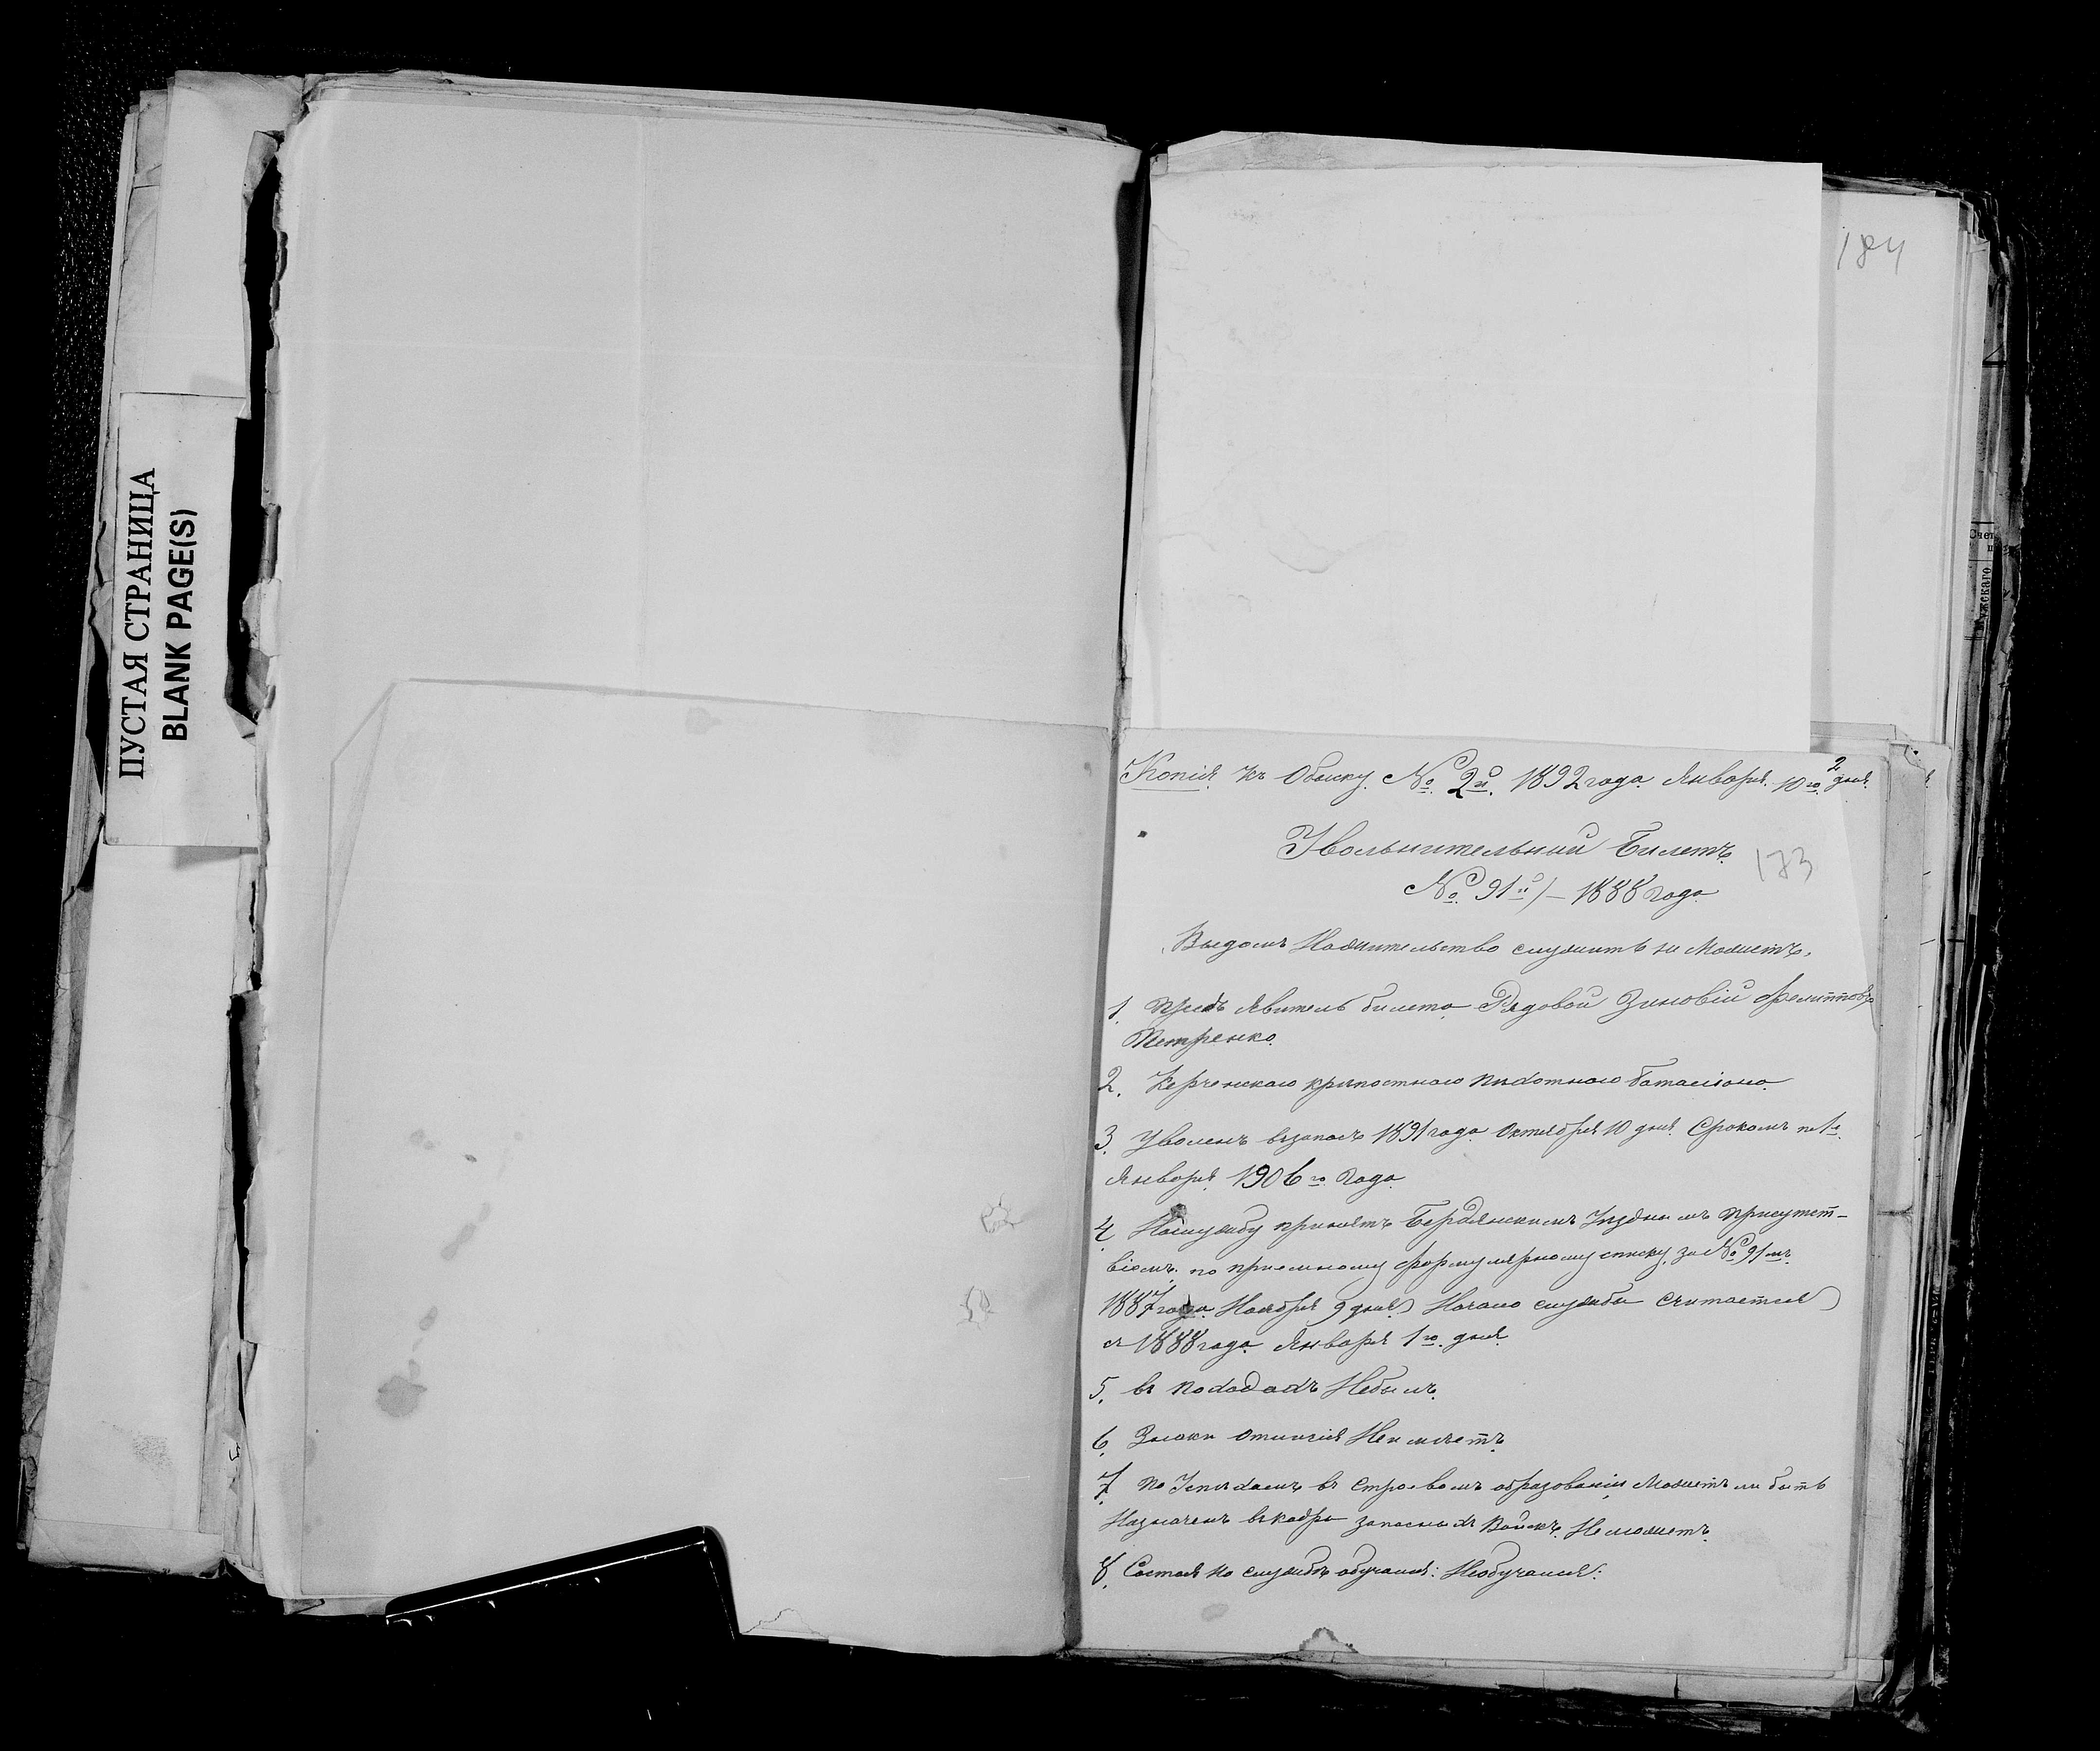 ПУСТАЯ СТРАНИЦА
BLANK PAGE(S)
184
2
Копія къ Обыску № 2й. 1892 года Января 10го дня
Увольнительный Билетъ
173
№ 91й/– 1888 года
Видомъ Нажительство служить не Можетъ.
1. Предъявитель билета Рядовой Зиновій Фелипповъ
Петренко.
2. Керченскаго крѣпостнаго пѣхотнаго баталіона
3. Уволенъ взапасъ 1891 года Октября 10 дня Срокомъ по 1е
Января 1906го Года
4. Наслужбу принятъ Бердянскимъ Уѣзднымъ присутст-
віемъ по приемному формулярному списку за № 91мъ
1887 года Ноября 9 дня Начало службы считается
съ 1888 года Января 1го дня
5. въ походахъ Небылъ
6. Знаки отличія Неимѣетъ
7. по Успѣхамъ въ строевомъ образованіи Можетъ ли быть
Назначенъ вкадры запасныхъ Войскъ. Неможетъ
8. Состоя на службѣ обучался: Необучался:
Счет
Мужскаго